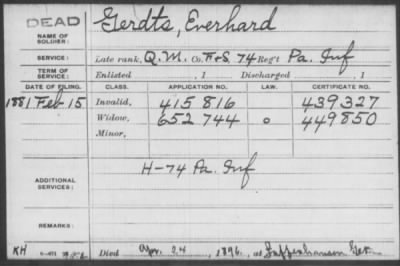 DEAD
Gerdts, Everhard
NAME OF
SOLDIER:
SERVICE:
Late rank, Q.M., Co. F&S, 74 Reg't Pa. Inf
TERM OF
SERVICE:
Enlisted , 1 Discharged , 1
DATE OF FILING. CLASS. APPLICATION NO. LAW. CERTIFICATE NO.
1881 Feb 15 Invalid, 415 816 439327
Widow, 652 744 0 449850
Minor,
H-74 Pa. Inf
ADDITIONAL
SERVICES:
REMARKS:
KH
Died Apr. 24, 1896, at